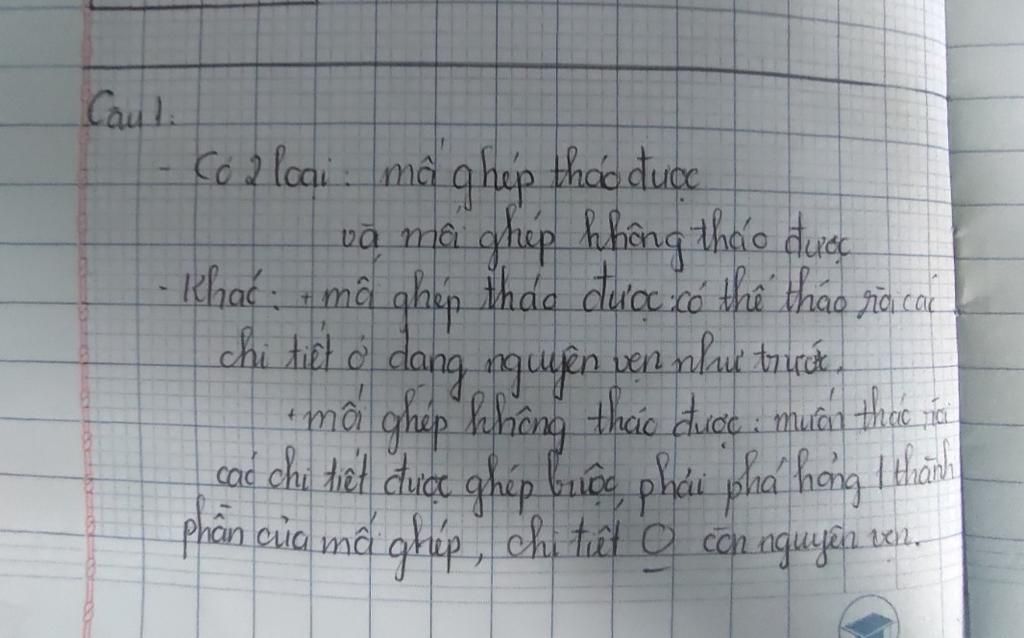 Câu 1:
- Có 2 loại: mối ghép tháo được
và mối ghép không tháo được
- Khác: + mối ghép tháo được: có thể tháo rời các
chi tiết ở dạng nguyên vẹn như trước.
+ mối ghép không tháo được: muốn tháo rời
các chi tiết được ghép buộc phải phá hỏng 1 thành
phần của mối ghép, chi tiết O còn nguyên vẹn.